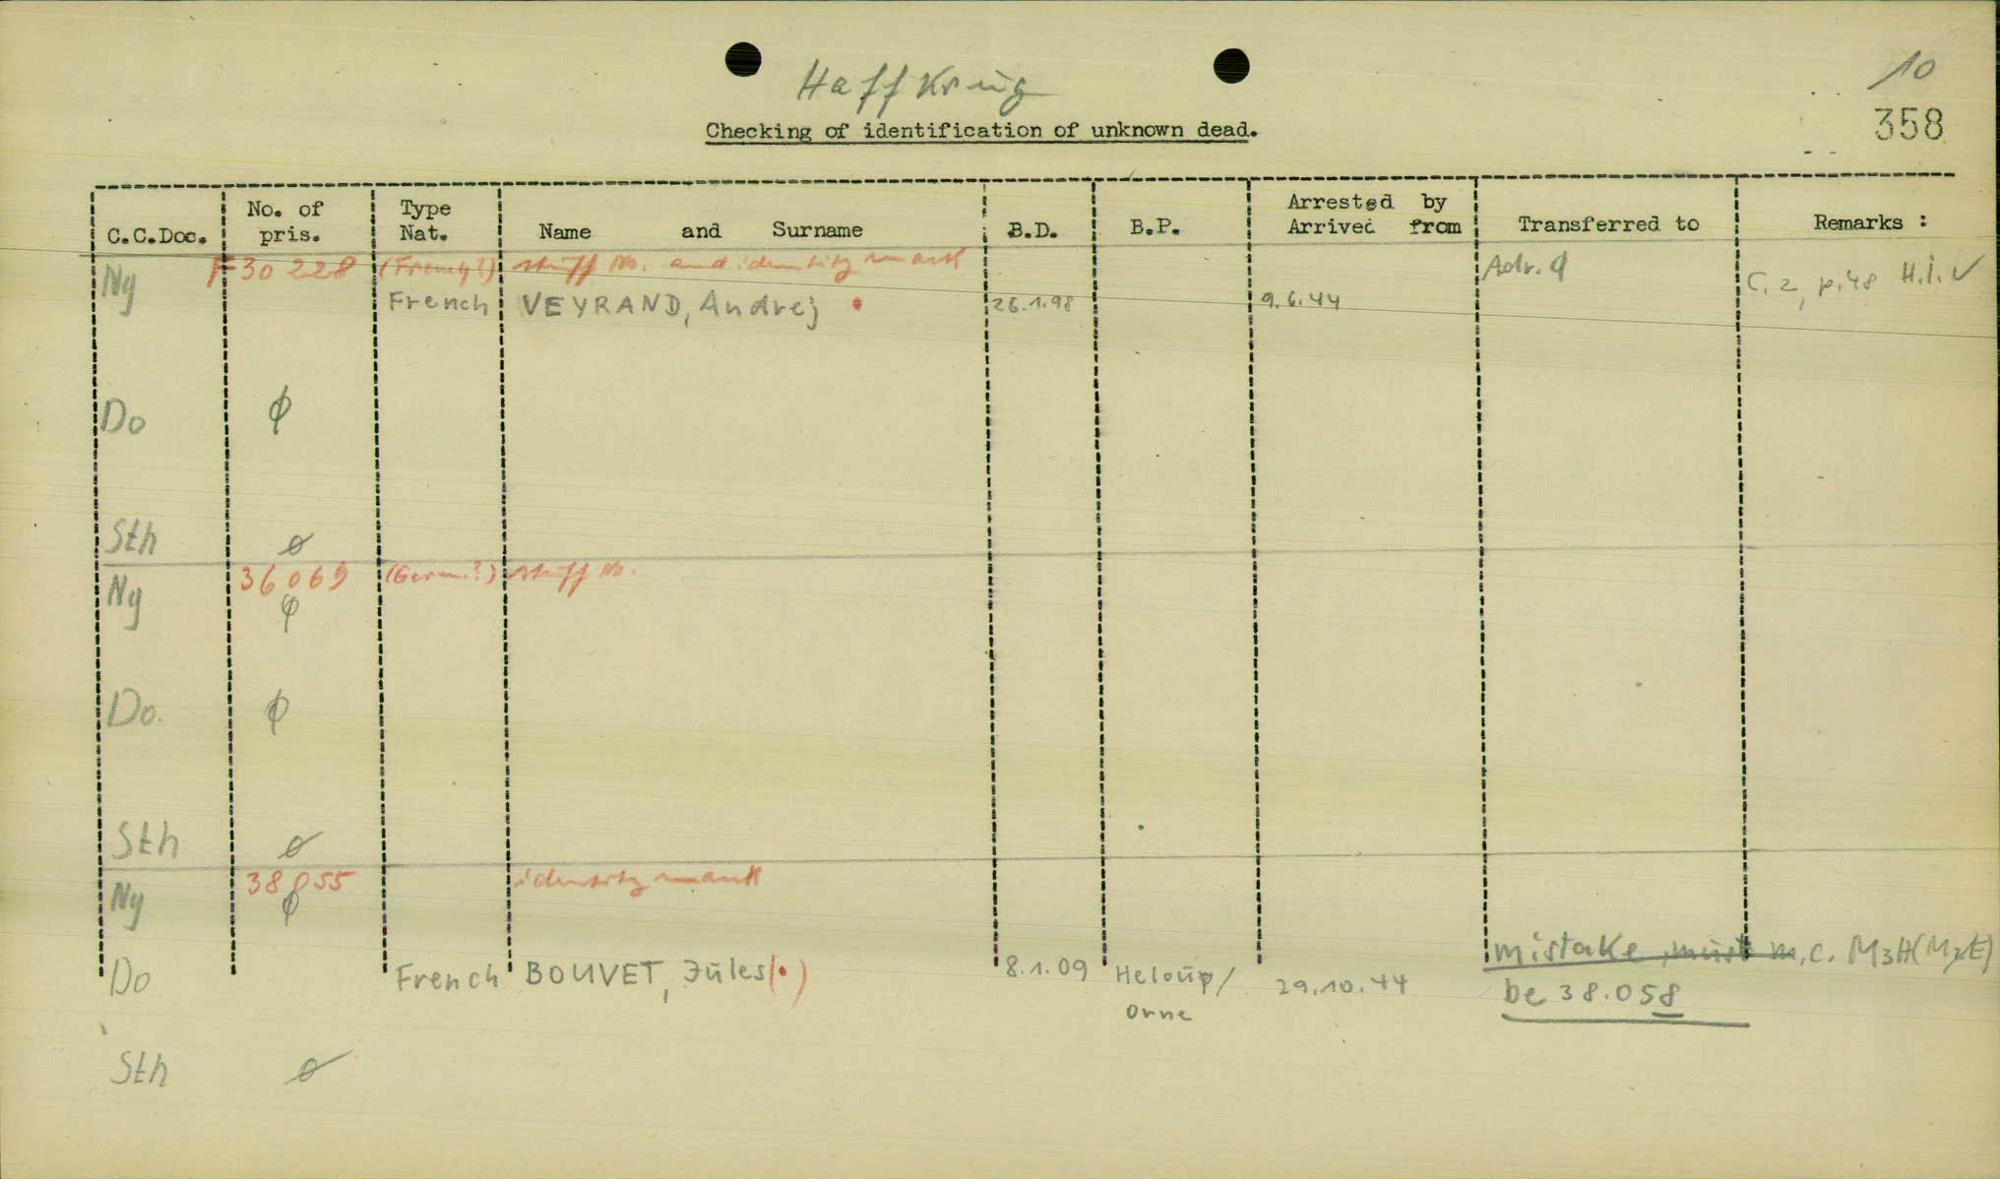 Haffkrug
10
358
Checking of identification of unknown dead.
C.C.Doc. No. of pris. Type Nat. Name and Surname B.D. B.P. Arrested by Arrived from Transferred to Remarks :
F 30 228 stuff No. and identity mark
Ny French VEYRAND, Andrej 26.1.98 9.6.44 Adr. C. 2, p. 48 H.i.
Do ø
Sth ø
36069 (Germ.?) stuff No.
Ny ø
Do. ø
Sth ø
38055 identity mark
Ny ø
mistake, must m.c. M3H(M2E)
Do French BOUVET, Jules (•) 8.1.09 Heloup/ Orne 29.10.44 be 38.058
Sth ø